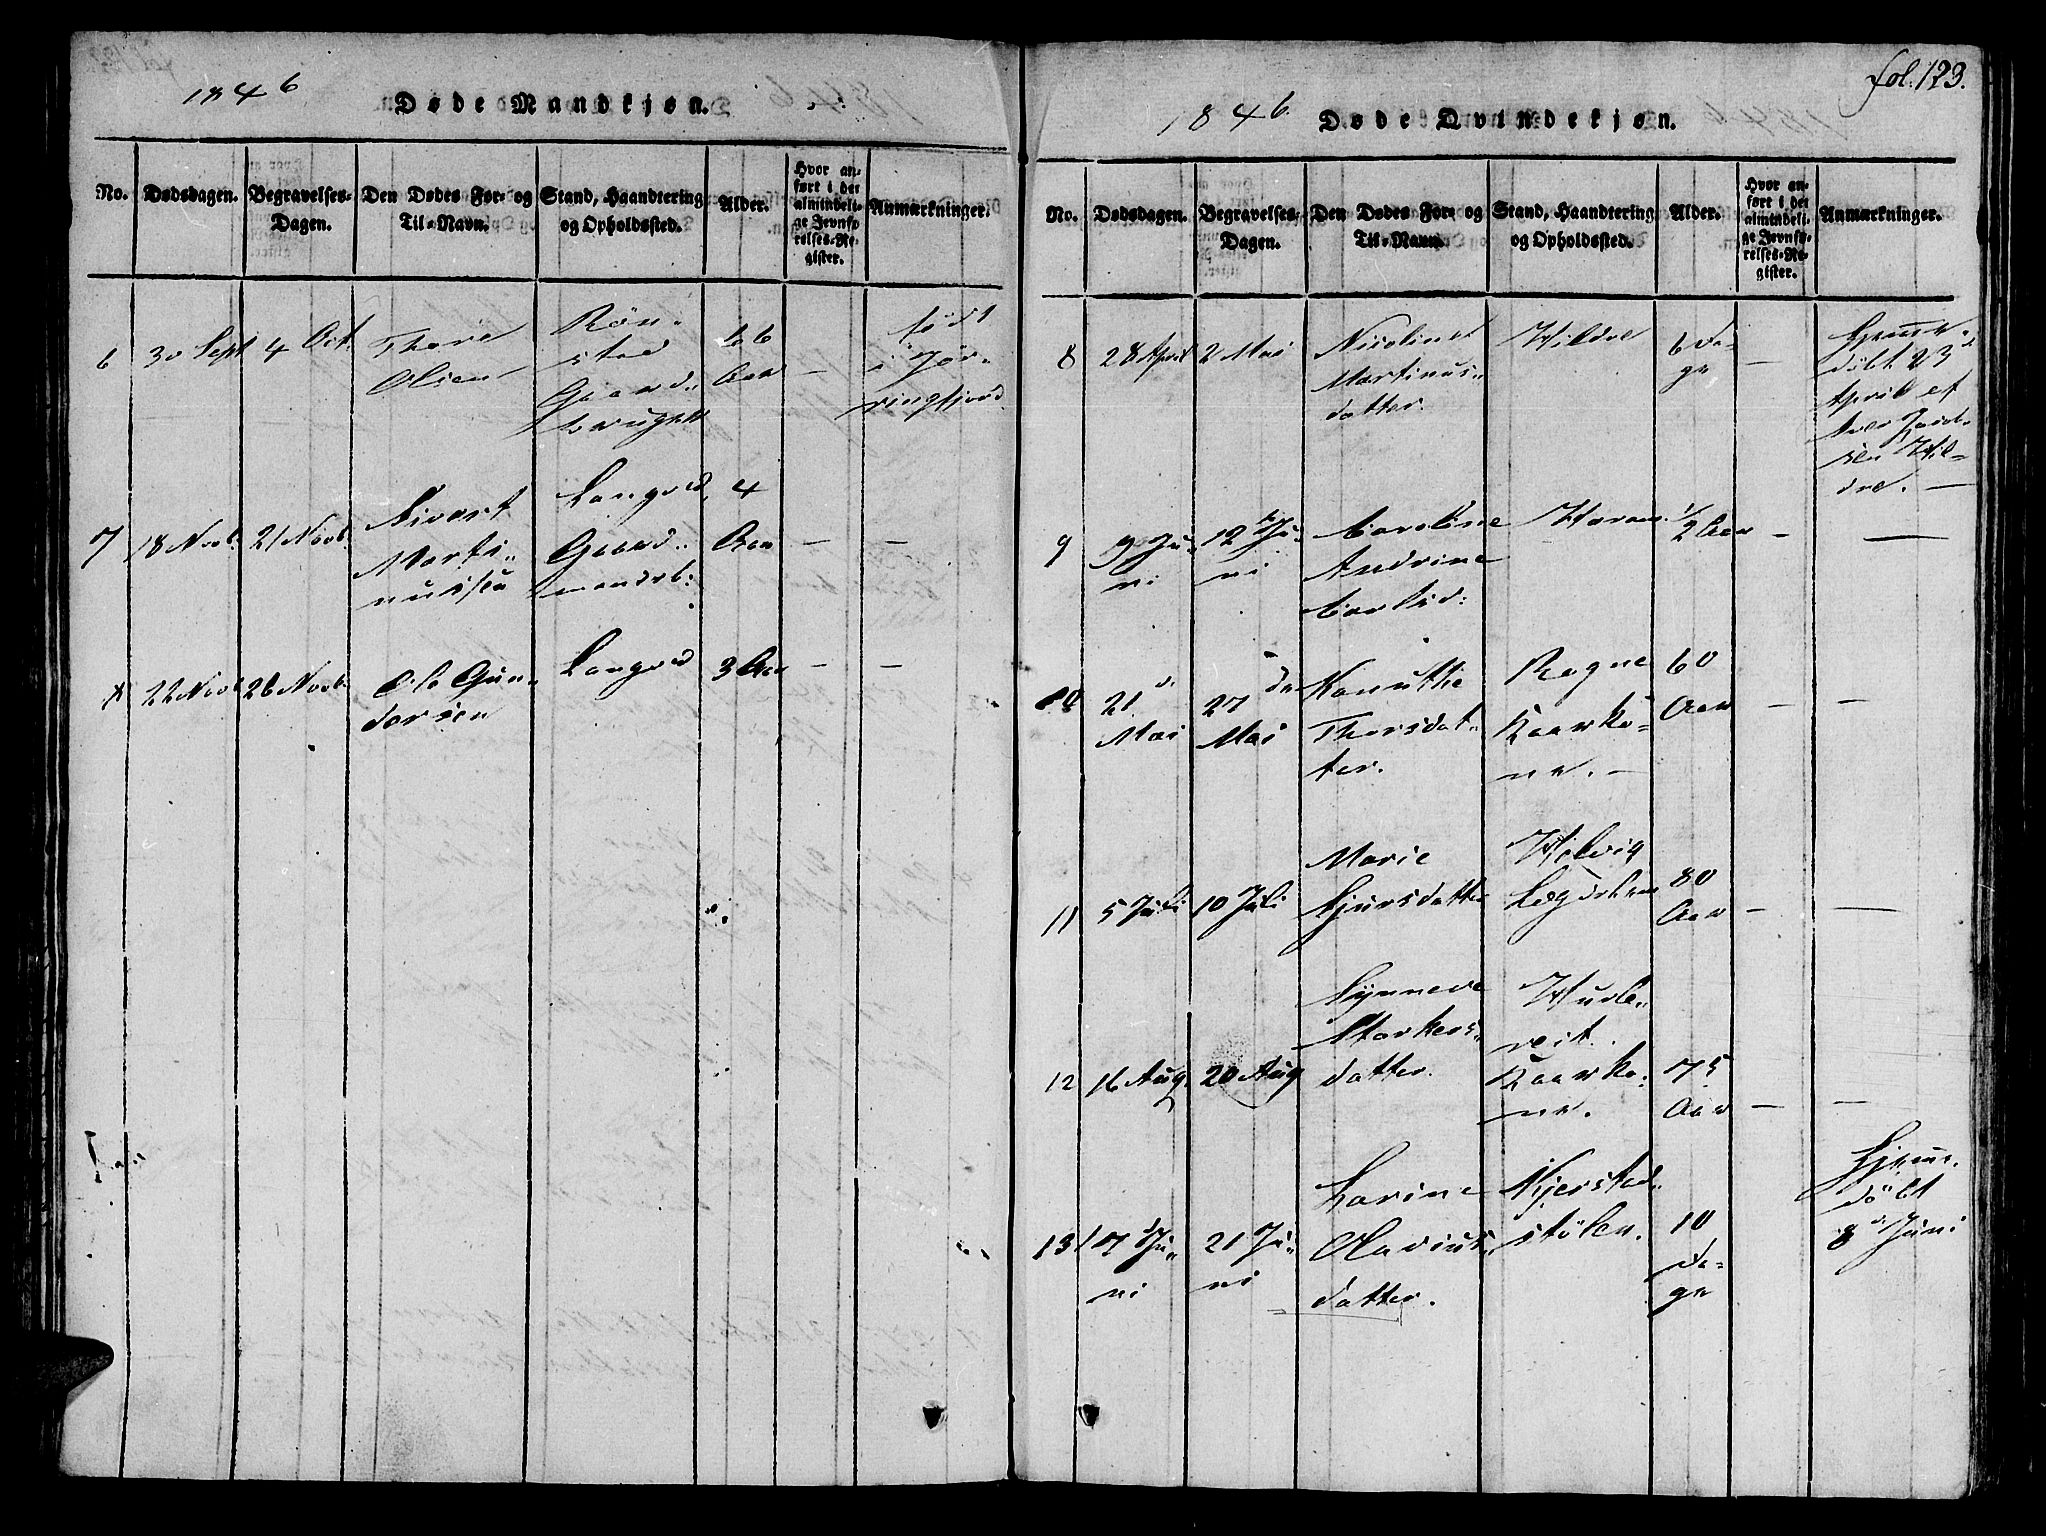 1846
Døde Mandkjøn.
No.
Dødsdagen.
Begravelses-
Dagen.
Den Dødes For- og
Til-Navn.
Stand, Haandtering
og Opholdssted.
Alder.
Hvor an-
ført i det
almindeli-
ge Jevnfø-
relses-Re-
gister.
Anmærkninger.
6
30 Sept
4 Oct.
Thore
Olsen
Røn-
stad
Gaard-
66
Aar
—
født
i Jør-
ringfjord
7
18 Novb.
21 Novb.
Sivert
Marti-
nussen
Longved
Gaard-
mandsb:
4
Aar
—
—
8
22 Novb
26 Novb.
Ole Gun-
dersen
Longved
3 Aar
—
—
fol. 123.
1846.
Døde Qvindekjøn.
No.
Dødsdagen.
Begravelses-
Dagen.
Den Dødes For- og
Til-Navn.
Stand, Haandtering
og Opholdssted.
Alder.
Hvor an-
ført i det
almindeli-
ge Jevnfø-
relses-Re-
gister.
Anmærkninger.
8
28 April
2 Mai
Nicoline
Martinus-
datter.
Hildre
6 Da-
ge
—
Hjemme-
døbt 23d
April af
Hil-
dre. —
9
9 Ju-
ni
12 Ju-
ni
Caroline
Andrine
Carlsd:
Haram.
1/2 Aar
—
—
10
21
Mai
27de
Mai
Kanutte
Thorsdat-
ter.
Rogne
Kaarko-
ne. —
60
Aar
—
—
11
5 Juli
10 Juli
Marie
Sjursdatter
Helvig
Lægdslem
80
Aar
—
—
12
16 Aug.
20 Aug
Synneve
Starkers-
datter.
Hurle-
veit.
Kaarko-
ne.
75
Aar
—
—
13
17d Ju-
ni
21 Ju-
ni
Larine
Olavius-
datter.
Kjerstad-
stølen.
10
Da-
ge
Hjemme-
døbt
8d Juni